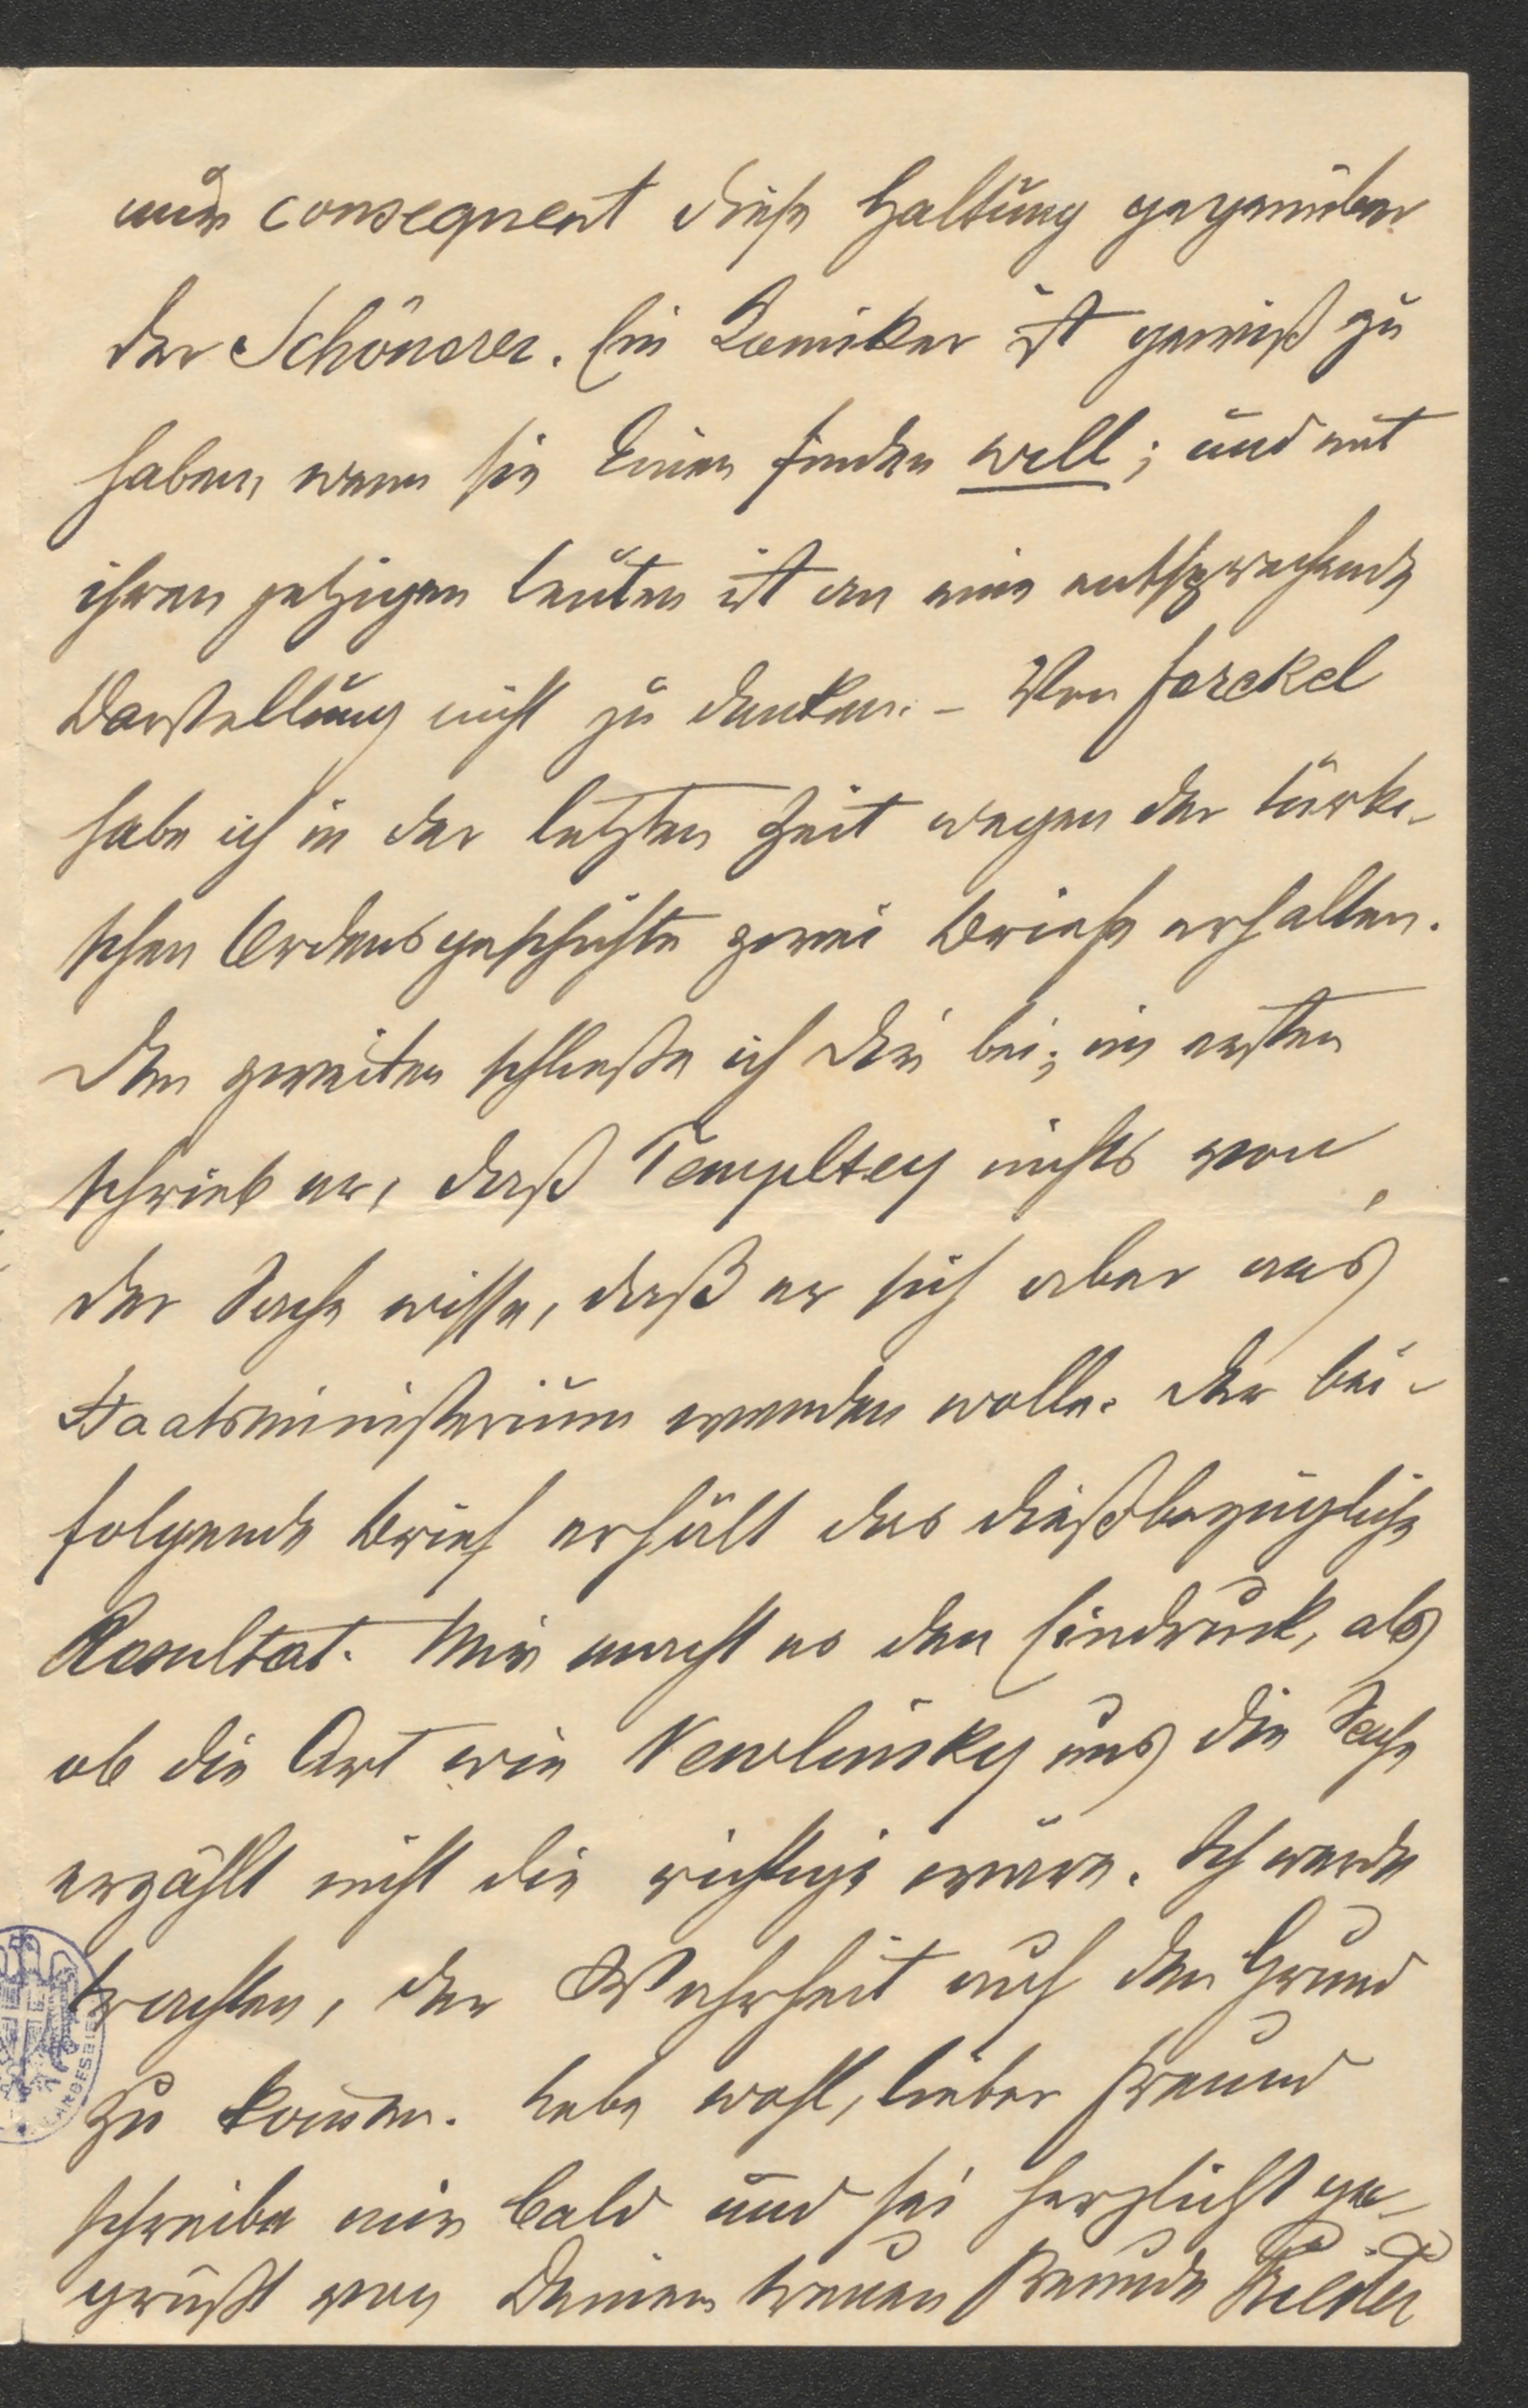 nur consequent diese Haltung gegenüber
der Schönerer. Ein Komiker ist gewiß zu
haben, wenn sie Einen finden will; und mit
ihren jetzigen Leuten ist an eine entsprechende
Darstellung nicht zu denken. – Von Jarckel
habe ich in der letzten Zeit wegen der türki-
schen Ordensgeschichte zwei Briefe erhalten.
Den zweiten schließe ich Dir bei; im ersten
schrieb er, daß Tempeltey nichts von
der Sache wisse, daß er sich aber ans
Staatsministerium wenden wolle. Der bei-
folgende Brief erhält das dießbezügliche
Resultat. Mir macht es den Eindruck, als
ob die Art wie Newlinsky uns die Sache
erzählt nicht die richtige wäre. Ich werde
trachten, der Wahrheit auf den Grund
zu kommen. Lebe wohl, lieber Freund
schreibe mir bald und sei herzlichst ge-
grüßt von Deinem treuen Freunde